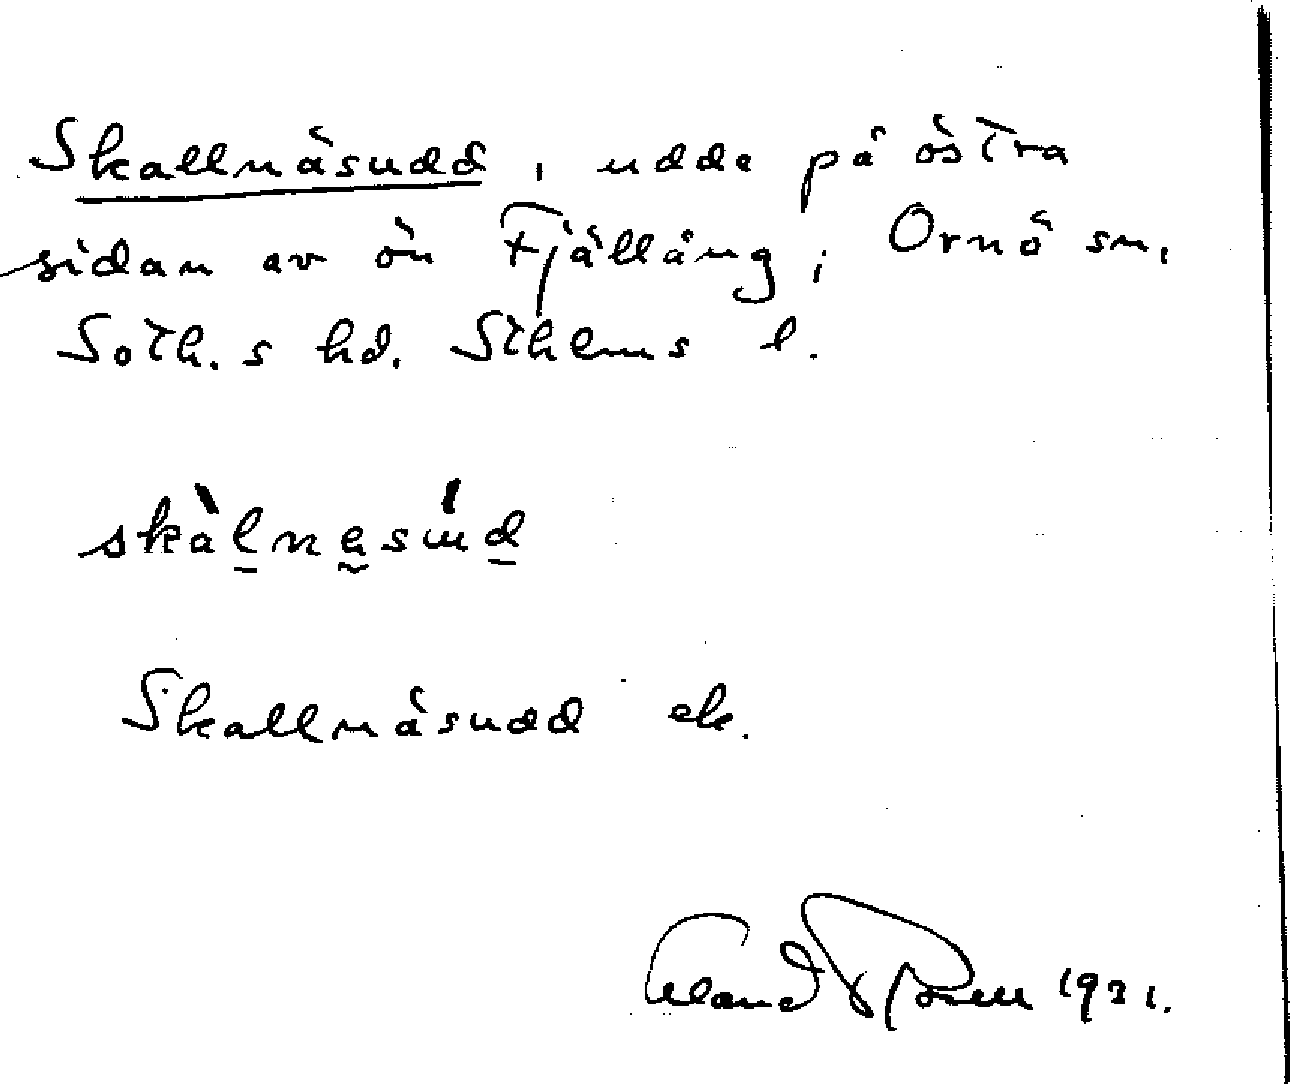 Skallnäsudd, udde på östra
sidan av ön Fjällång, Ornö sn,
Soth.s hd. Sthlms l.
skàlnəsúd
Skallnäsudd ek.
1931.